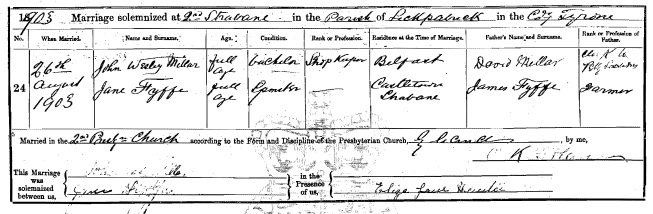 1903 Marriage solemnized at 2nd Strabane in the Parish of Leckpatrick in the Coy Tyrone
When Married. Name and Surname. Age. Condition. Rank or Profession. Residence at the Time of Marriage. Father's Name and Surname. Rank or Profession of Father.
24 26th August 1903
John Wesley Millar full age Bachelor Shop Keeper Belfast David Millar
Jane Fyffe full age Spinster Castletown Strabane James Fyffe Farmer
Married in the 2nd Presb Church according to the Form and Discipline of the Presbyterian Church, by me,
This Marriage was solemnized between us,
in the Presence of us,
Eliza Jane Hunter